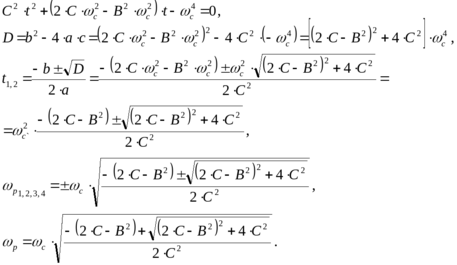 C² · t² + (2 · C · ω_c² − B² · ω_c²) · t − ω_c⁴ = 0,
D = b² − 4 · a · c = (2 · C · ω_c² − B² · ω_c²)² − 4 · C² · (− ω_c⁴) = [(2 · C − B²)² + 4 · C²] · ω_c⁴ ,
t₁,₂ = (− b ± √D) / (2 · a) = (− (2 · C · ω_c² − B² · ω_c²) ± ω_c² · √((2 · C − B²)² + 4 · C²)) / (2 · C²) =
= ω_c² · (− (2 · C − B²) ± √((2 · C − B²)² + 4 · C²)) / (2 · C²) ,
ω_p₁,₂,₃,₄ = ± ω_c · √((− (2 · C − B²) ± √((2 · C − B²)² + 4 · C²)) / (2 · C²)) ,
ω_p = ω_c · √((− (2 · C − B²) + √((2 · C − B²)² + 4 · C²)) / (2 · C²)) .